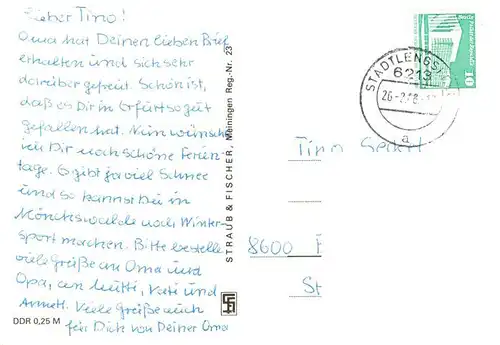 Lieber Tino!
Oma hat Deinen lieben Brief
erhalten und sich sehr
darüber gefreut. Schön ist,
daß es Dir in Erfurt so gut
gefallen hat. Nun wünsche
ich Dir noch schöne Ferien-
tage. Es gibt ja viel Schnee
und so kannst Du in
Mönchswalde noch Winter-
sport machen. Bitte bestelle
viele Grüße an Oma und
Opa, an Mutti, Vati und
Annett. Viele Grüße auch
für Dich von Deiner Oma
DDR 0,25 M
STRAUB & FISCHER, Meiningen Reg.-Nr. 23
STADTLENGS
6213
a
10
Tino
8600
St